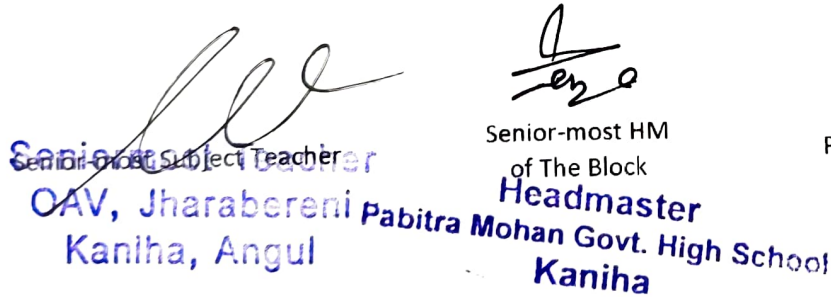 Senior-most Subject Teacher
Seniormost Teacher
OAV, Jharabereni
Kaniha, Angul
Senior-most HM
of The Block
Headmaster
Pabitra Mohan Govt. High School
Kaniha